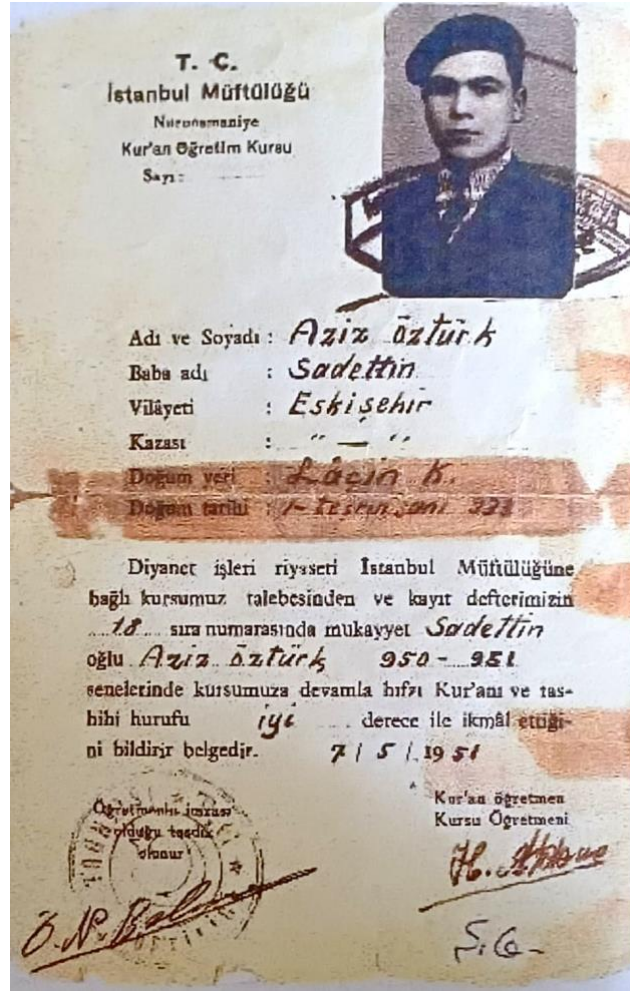 T. C.
İstanbul Müftülüğü
Nuruosmaniye
Kur'an Öğretim Kursu
Sayı:
Adı ve Soyadı : Aziz öztürk
Baba adı : Sadettin
Vilâyeti : Eskişehir
Kazası : " — "
Doğum yeri : Lâçin K.
Doğum tarihi : 1- teşrin sani
Diyanet işleri riyaseti İstanbul Müftülüğüne
bağlı kursumuz talebesinden ve kayıt defterimizin
18 sıra numarasında mukayyet Sadettin
oğlu Aziz öztürk 950 - 951
senelerinde kursumuza devamla hıfzı Kur'anı ve tas-
hihi hurufu iyi derece ile ikmâl ettiği-
ni bildirir belgedir. 7 / 5 / 1951
Öğretmenin imzası
olduğu tasdik
olunur
Kur'an öğretmen
Kursu Öğretmeni